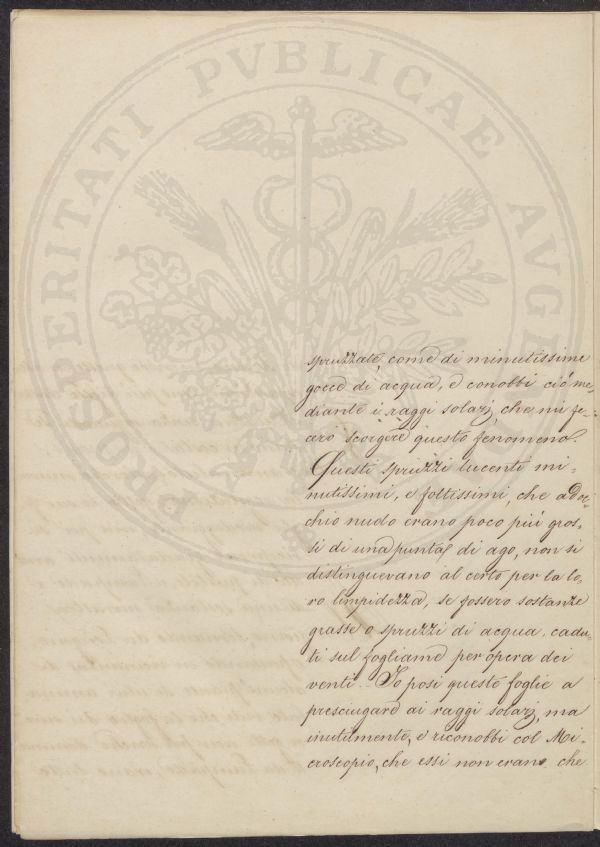 PROSPERITATI PVBLICAE AVGENDAE
spruzzate, come di minutissime
gocce di acqua, e conobbi ciò me-
diante i raggi solari, che mi fe-
cero scorgere questo fenomeno.
Questi spruzzi lucenti mi-
nutissimi, e foltissimi, che ad oc-
chio nudo erano poco più gros-
si di una punta di ago, non si
distinguevano al certo per la lo-
ro limpidezza, se fossero sostanze
grasse o spruzzi di acqua, cadu-
ti sul fogliame per opera dei
venti. Io posi queste foglie a
presciugare ai raggi solari, ma
inutilmente, e riconobbi col Mi-
croscopio, che essi non erano che